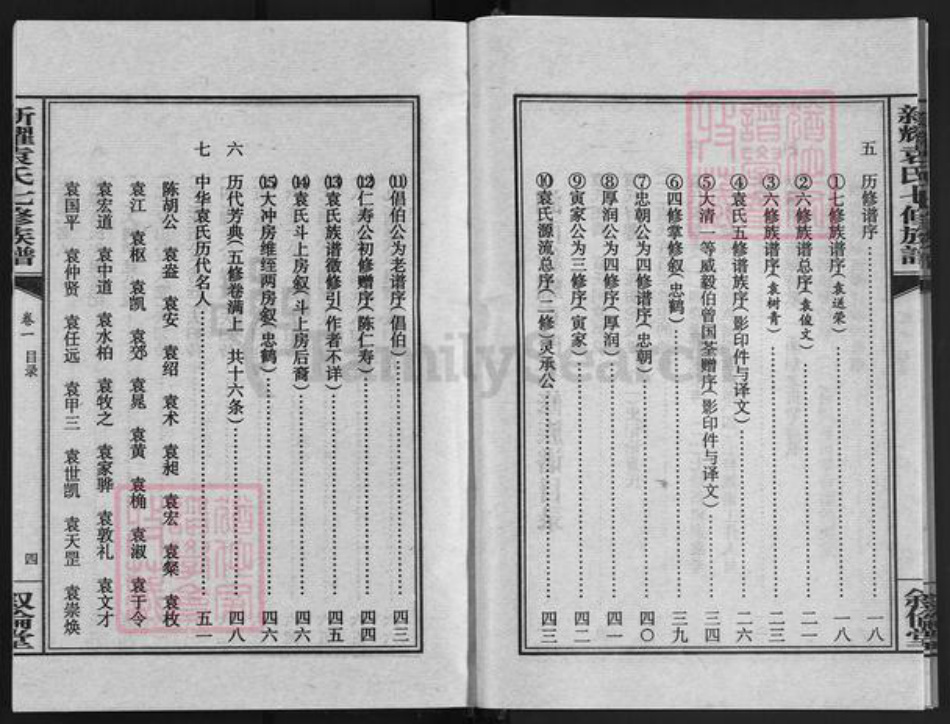 五 历修谱序 一八
①七修族谱序(袁送荣) 一八
②六修族谱总序(袁俊文) 二一
③六修族谱序(袁树青) 二三
④袁氏五修谱族序(影印件与译文) 二六
⑤大清一等威毅伯曾国荃赠序(影印件与译文) 三四
⑥四修掌修叙(忠鹤) 三九
⑦忠朝公为四修谱序(忠朝) 四〇
⑧厚润公为四修序(厚润) 四一
⑨寅家公为三修序(寅家) 四二
⑩袁氏源流总序(二修·灵承公) 四三
⑪倡伯公为老谱序(倡伯) 四三
⑫仁寿公初修赠序(陈仁寿) 四四
⑬袁氏族谱徵修引(作者不详) 四五
⑭袁氏斗上房叙(斗上房后裔) 四六
⑮大冲房维绖两房叙(忠鹤) 四六
六 历代芳典(五修卷满上 共十六条) 四八
七 中华袁氏历代名人 五一
陈胡公 袁盎 袁安 袁绍 袁术 袁昶 袁宏 袁粲 袁枚
袁江 袁枢 袁凯 袁郊 袁晁 袁黄 袁桷 袁淑 袁于令
袁宏道 袁中道 袁水柏 袁牧之 袁家骅 袁敦礼 袁文才
袁国平 袁仲贤 袁任远 袁甲三 袁世凯 袁天罡 袁崇焕
新耀袁氏七修族譜
卷一 目录
四
叙倫堂
FamilySearch